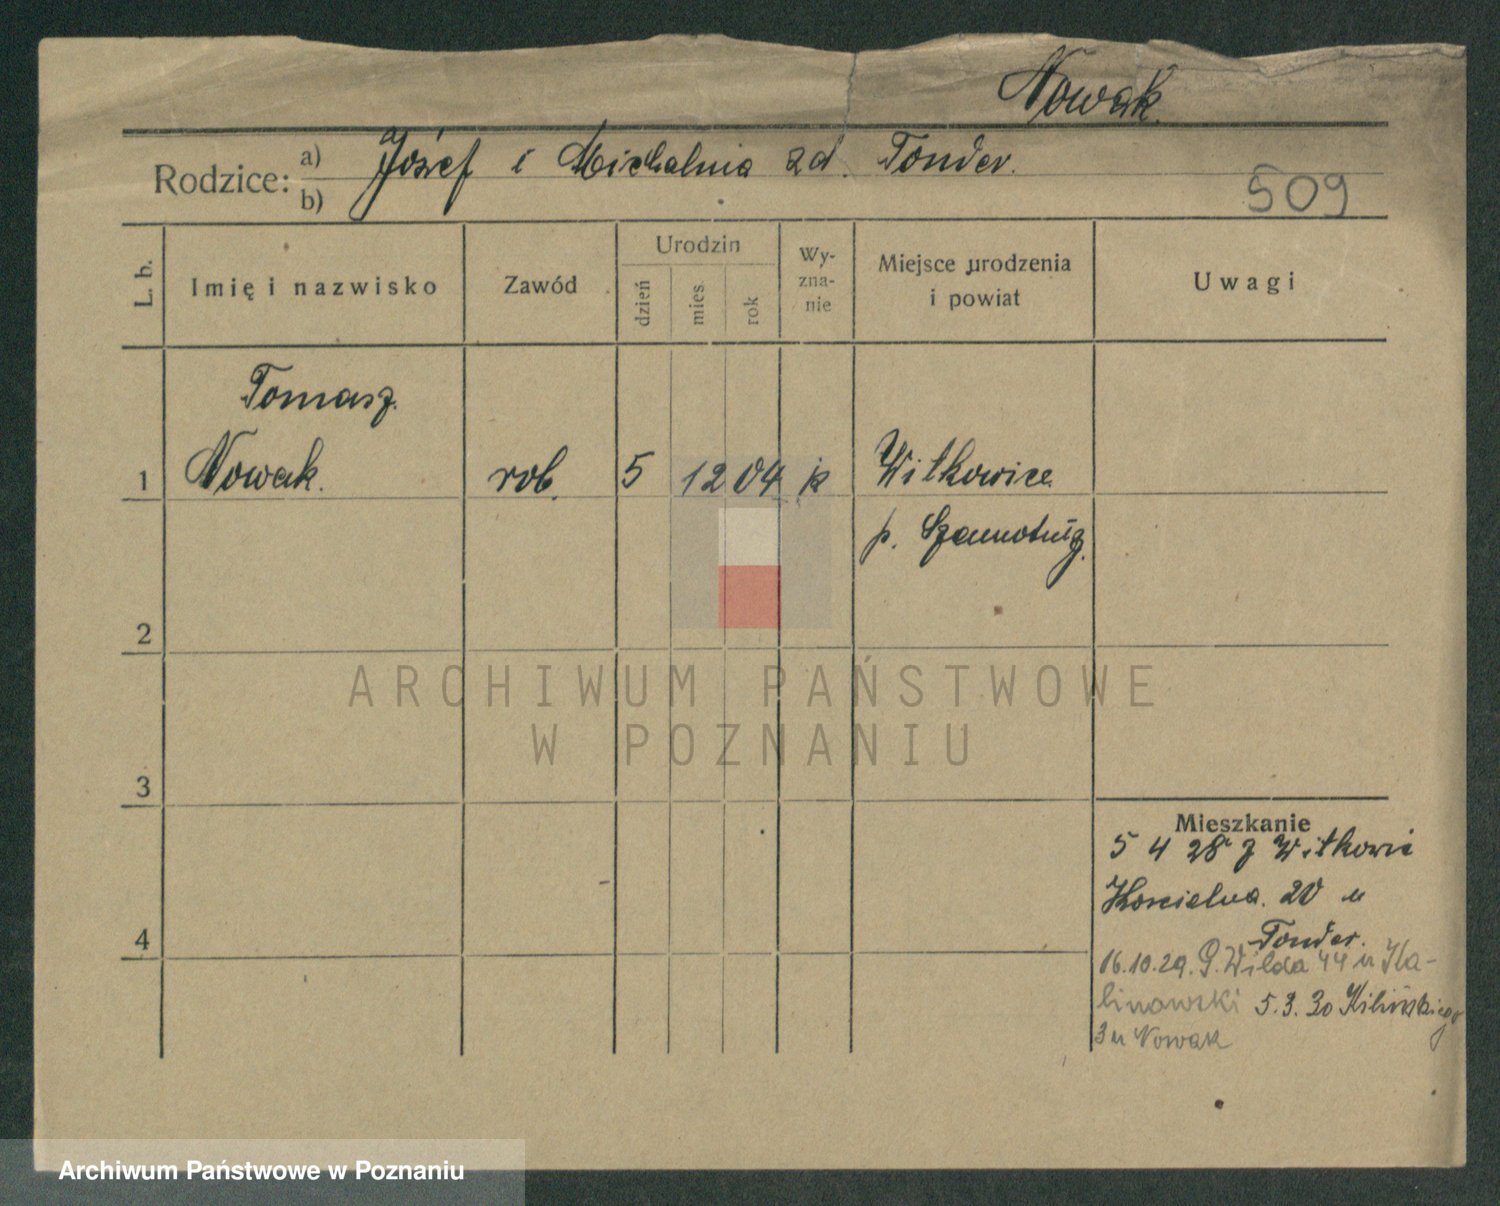 Nowak.
Rodzice: a) Józef i Michalina zd. Tonder.
b)
509
L. b. Imię i nazwisko Zawód Urodzin dzień mies. rok Wyznanie Miejsce urodzenia i powiat Uwagi
Tomasz
1 Nowak. rob. 5 12 04 k Witkowice
p. Szamotuły
2
ARCHIWUM PAŃSTWOWE
W POZNANIU
3
Mieszkanie
5 4 28 z Witkowic
Kościelna. 20 u
4 Tonder.
16.10.29. G. Wilda 44 u Ka-
linowski 5.3.30 Kilińskiego
3 u Nowak
Archiwum Państwowe w Poznaniu